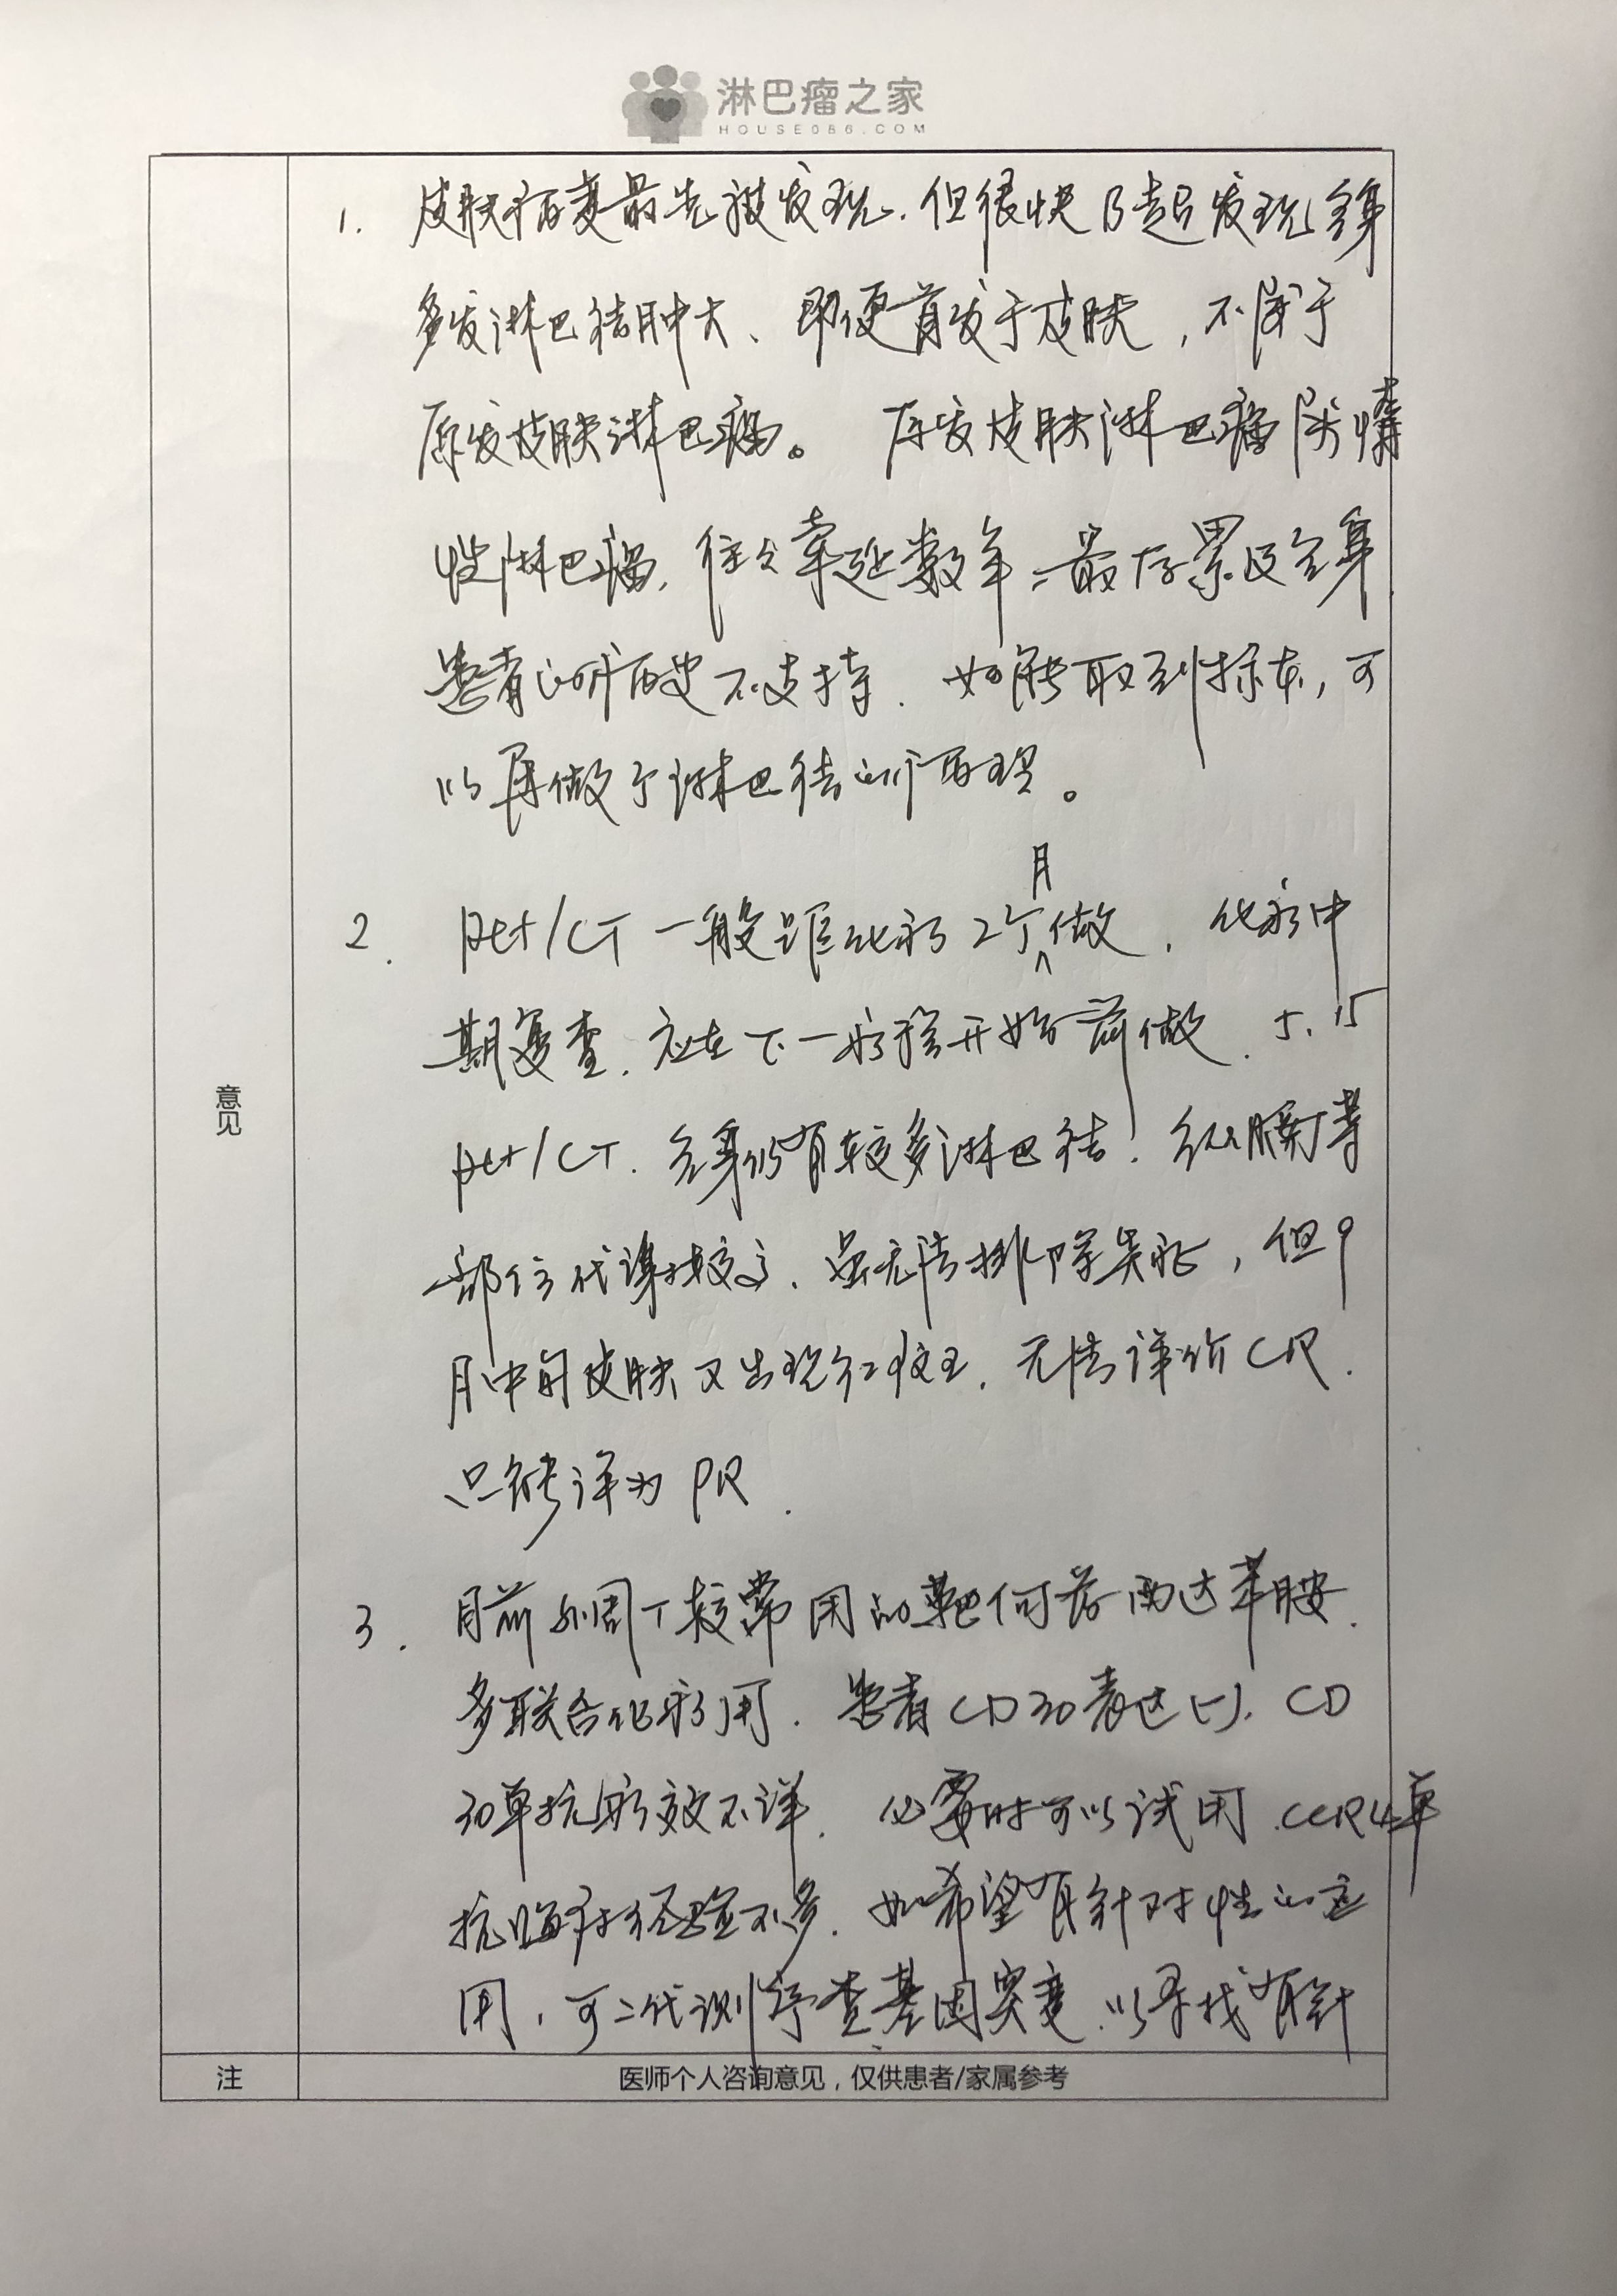 淋巴瘤之家
HOUSE086.COM
1. 皮肤病变最先被发现、但很快B超发现全身
多发淋巴结肿大、即便首发于皮肤，不属于
原发皮肤淋巴瘤。 原发皮肤淋巴瘤属惰
性淋巴瘤，往往牵延数年，最后累及全身
患者的病史不支持．如能取到标本，可
以再做个淋巴结的病理。
2. pet/CT 一般距化疗2个月做．化疗中
期复查，应在下一疗程开始前做．5.15
pet/CT．全身仍有较多淋巴结！
部位代谢较高．虽无法排除炎症，但9
月中旬皮肤又出现红斑，无法评价CR．
只能评为PR．
3. 目前外周T较常用的靶向药西达苯胺．
多联合化疗用．患者CD30表达(-)，CD
30单抗疗效不详．必要时可以试用．CCR4单
抗临床经验不多．如希望有针对性的应
用，可二代测序查基因突变，以寻找有针
意见
注
医师个人咨询意见，仅供患者/家属参考